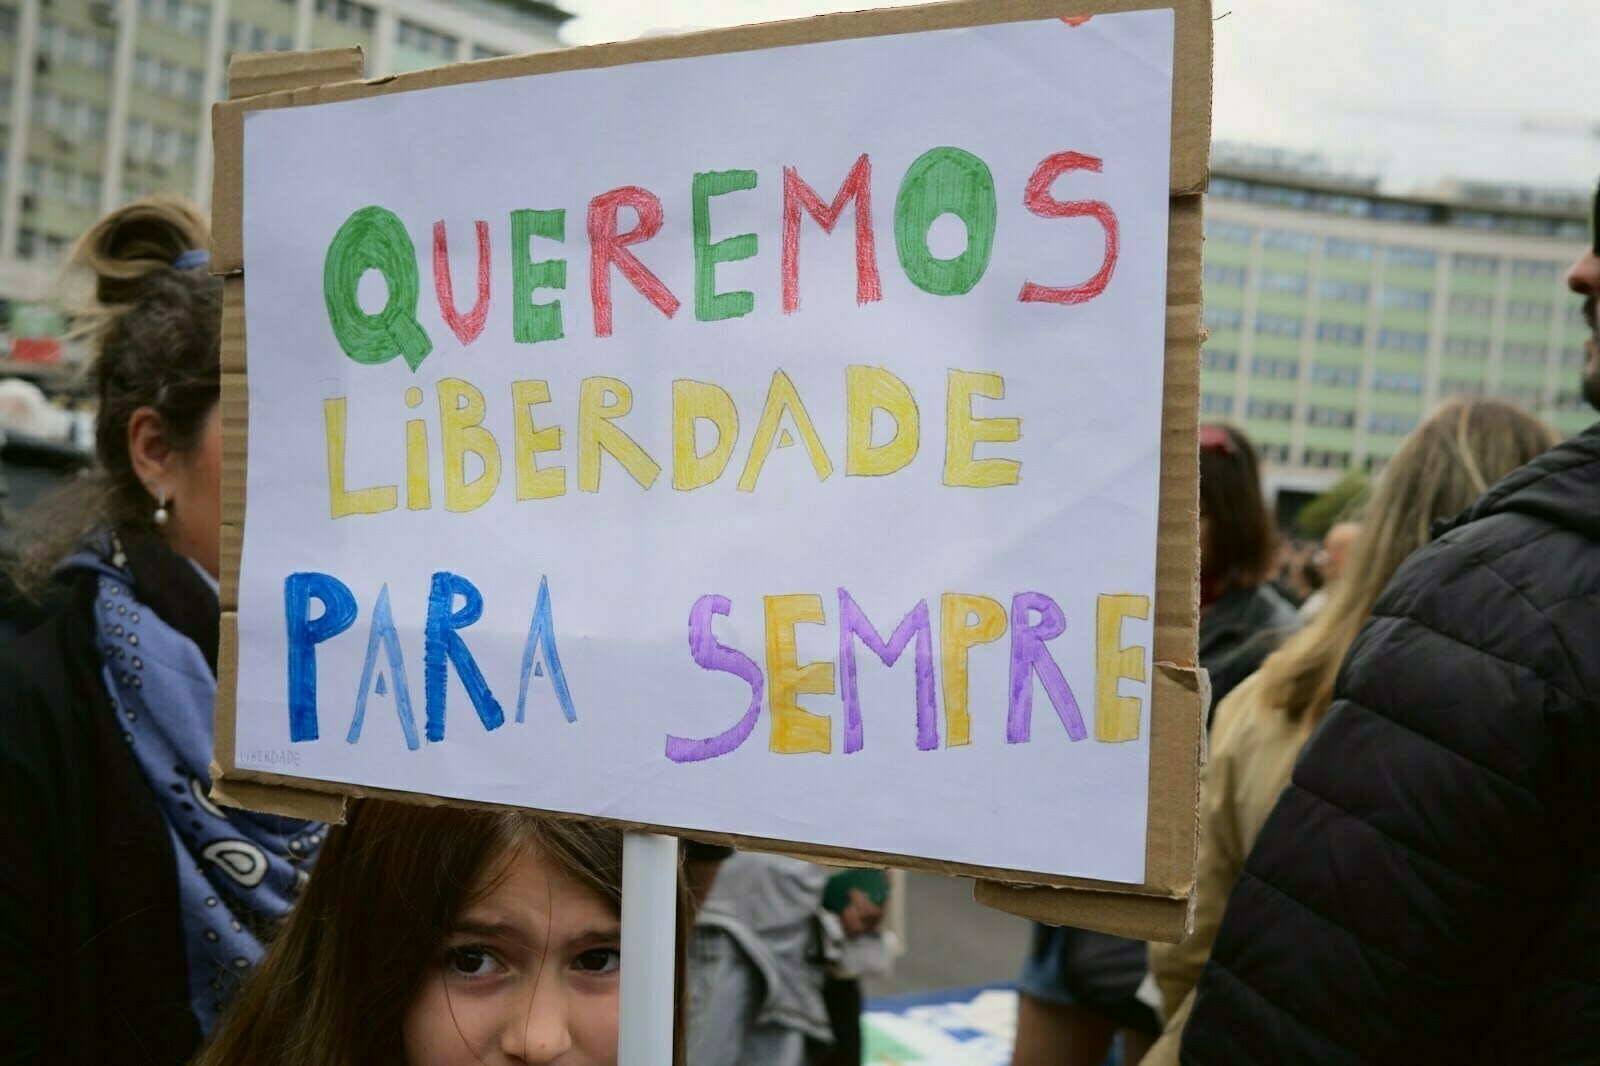 QUEREMOS
LiBERDADE
PARA SEMPRE
LIBERDADE